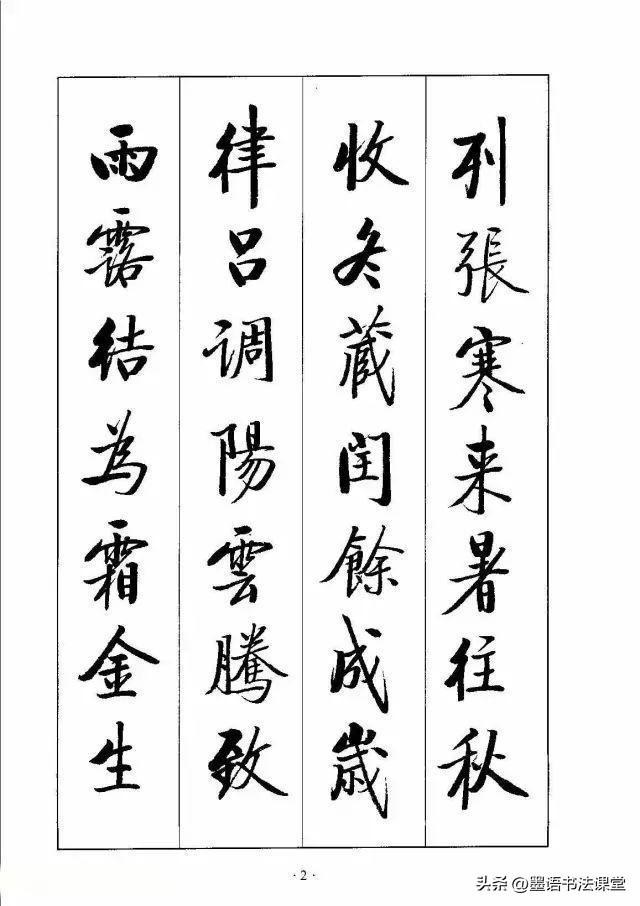 列張寒来暑往秋
收冬蔵閏餘成歲
律吕调陽雲騰致
雨露结為霜金生
· 2 ·
头条 @墨语书法课堂